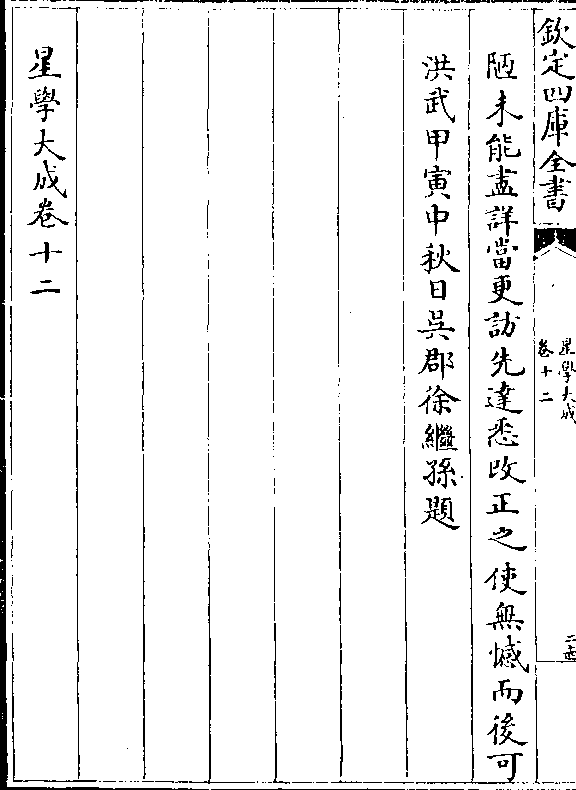 欽定四庫全書
星學大成
卷十二
陋未能盡詳當更訪先達悉改正之使無憾而後可
洪武甲寅中秋日吳郡徐繼孫題
星學大成卷十二